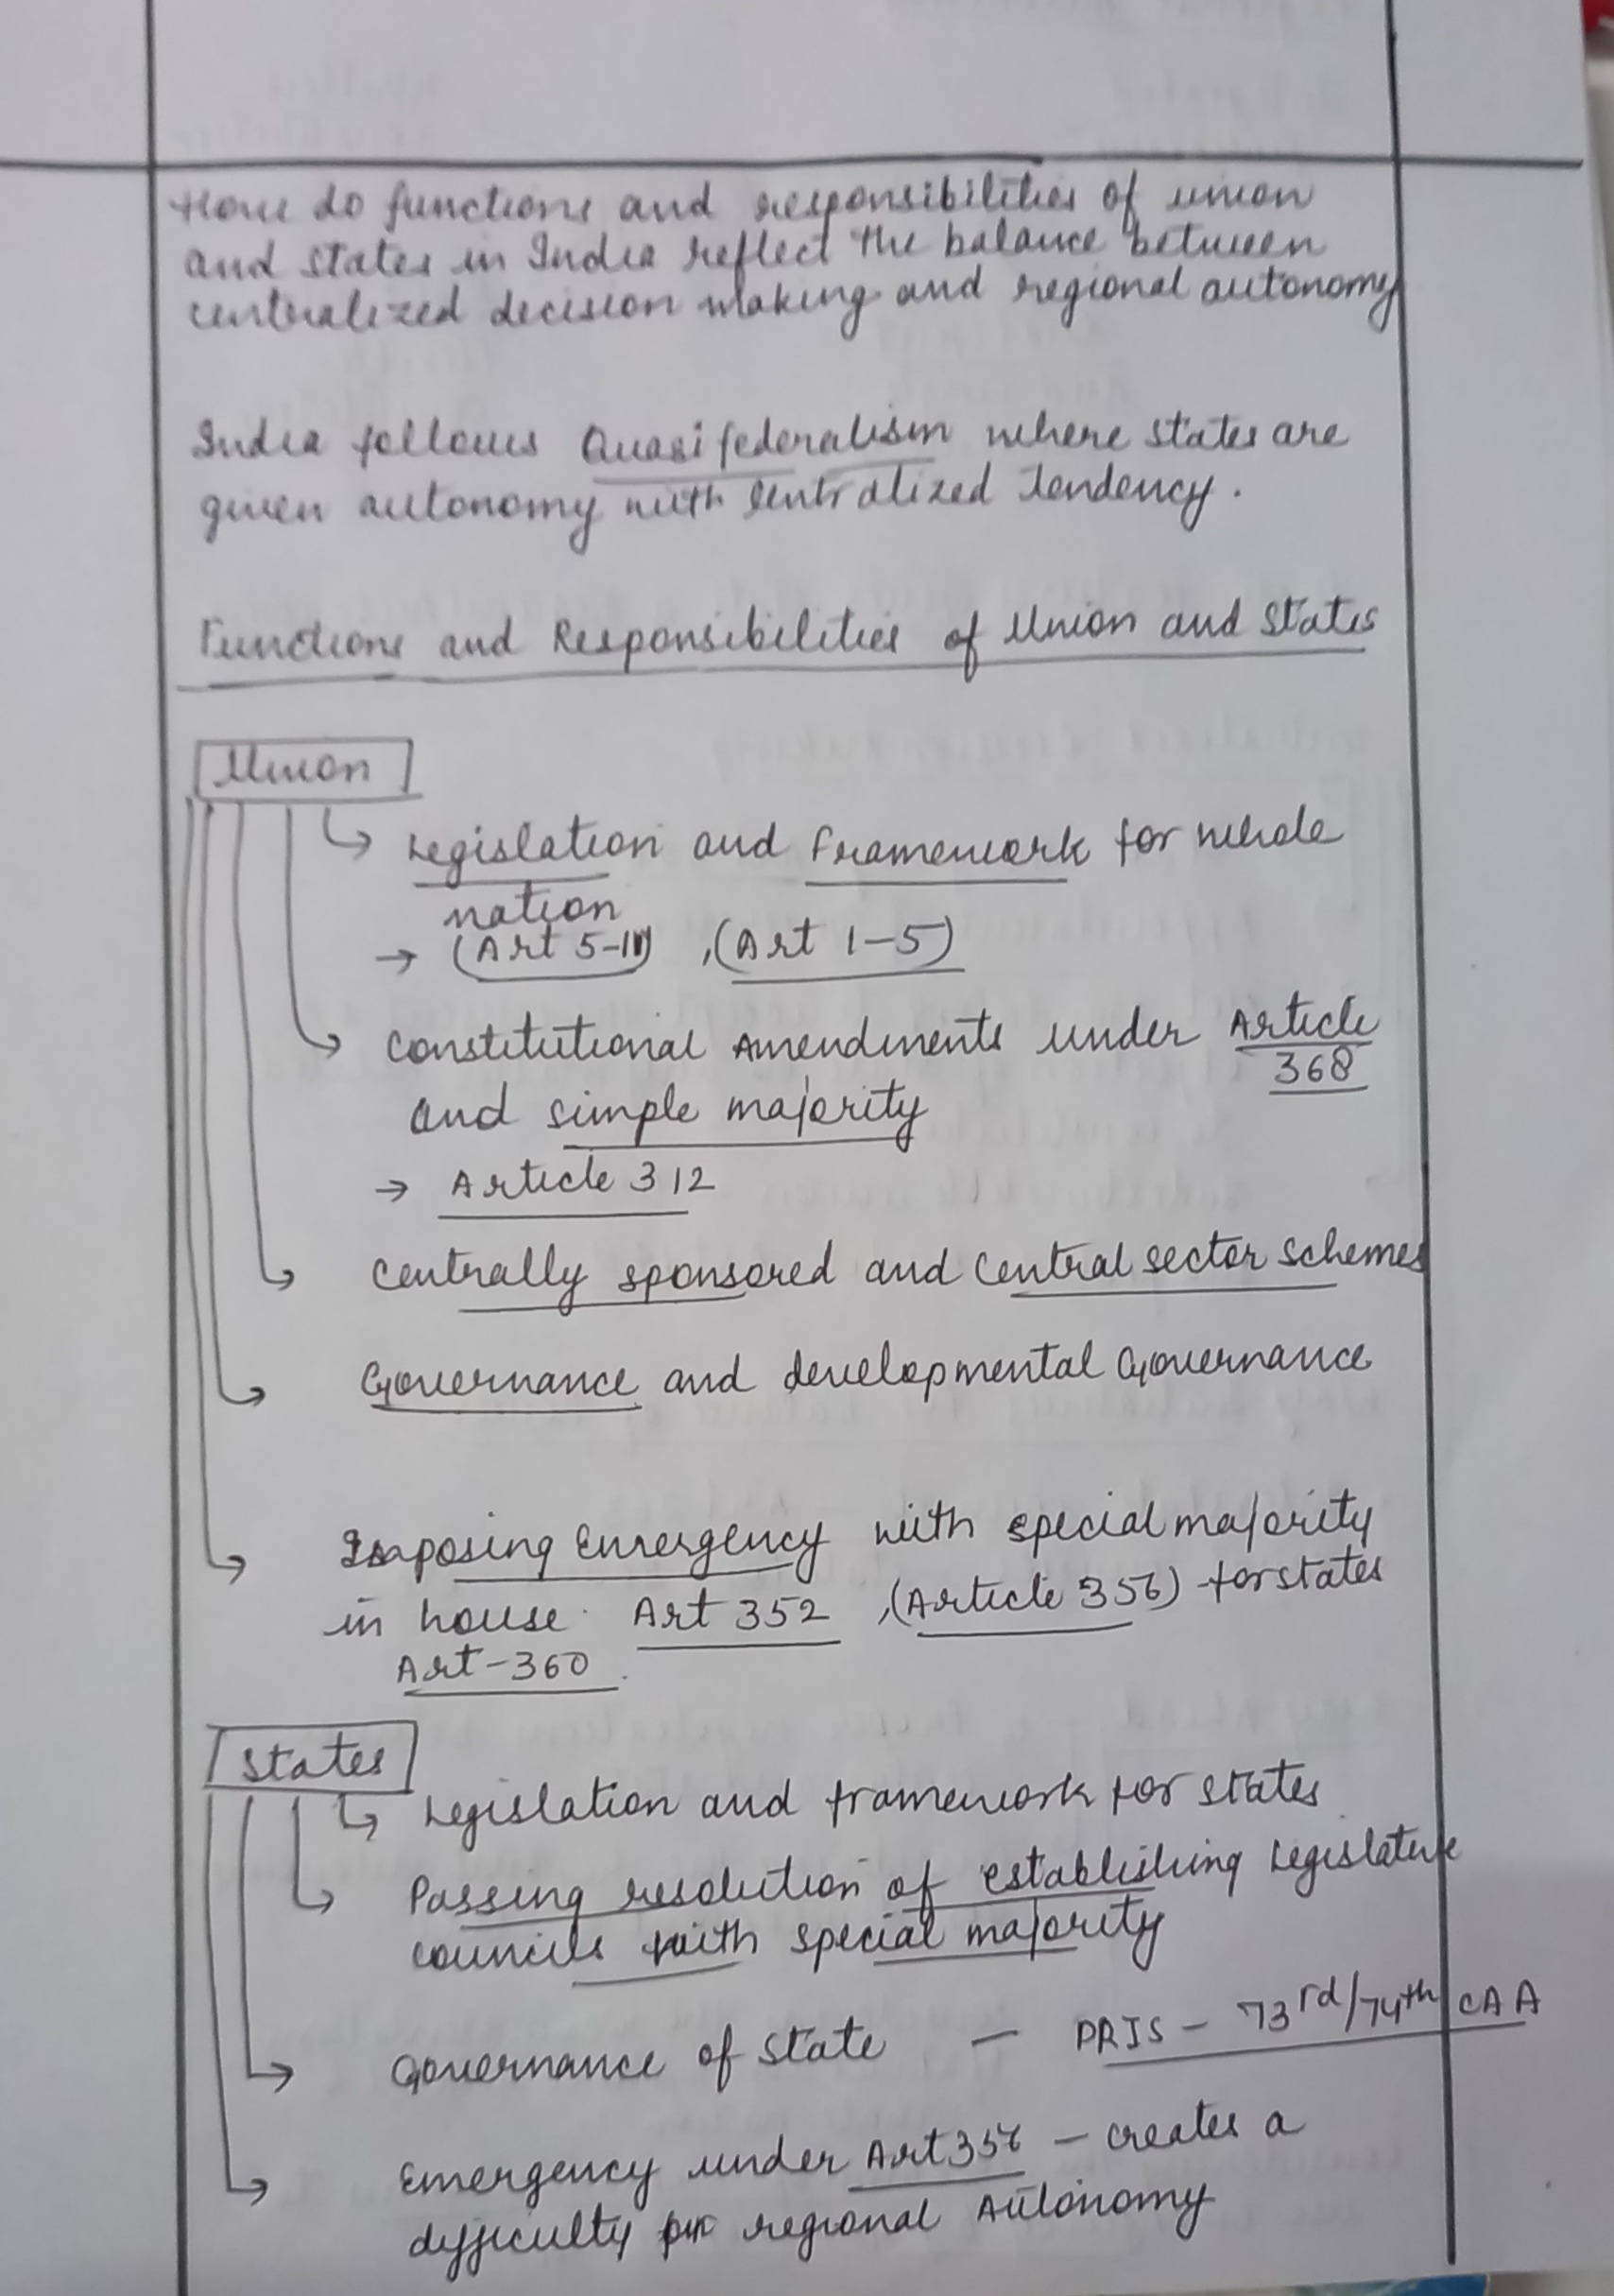 How do functions and responsibilities of union
and states in India reflect the balance between
centralized decision making and regional autonomy
India follows Quasi federalism where states are
given autonomy with Centralized Tendency.
Functions and Responsibilities of Union and States
Union
Legislation and Framework for whole
nation
→ (Art 5-11) , (Art 1-5)
Constitutional Amendments under Article
368
and simple majority
→ Article 312
Centrally sponsored and Central sector schemes
Governance and developmental Governance
Imposing Emergency with special majority
in house. Art 352 , (Article 356) - for states
Art-360.
States
Legislation and framework for states
Passing resolution of establishing Legislature
councils with special majority
Governance of State — PRIS - 73rd/74th CAA
Emergency under Art 356 — creates a
difficulty for regional Autonomy